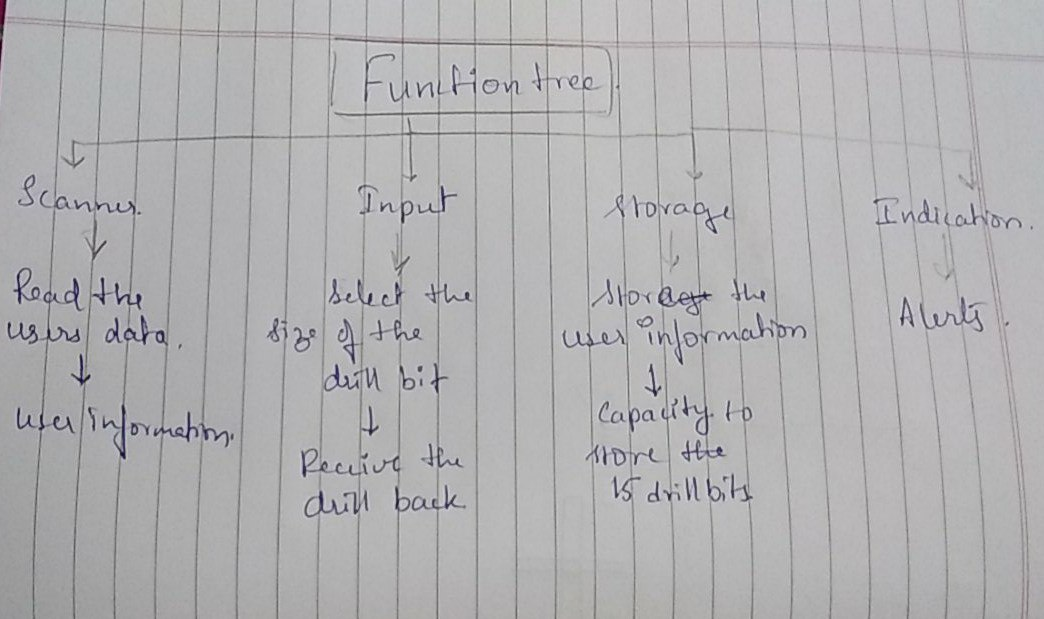 Function tree
Scanner.
Read the
users data.
user information.
Input
Select the
size of the
drill bit
Receive the
drill back
Storage
Store the
user information
Capacity to
store the
15 drill bits
Indication.
Alerts.